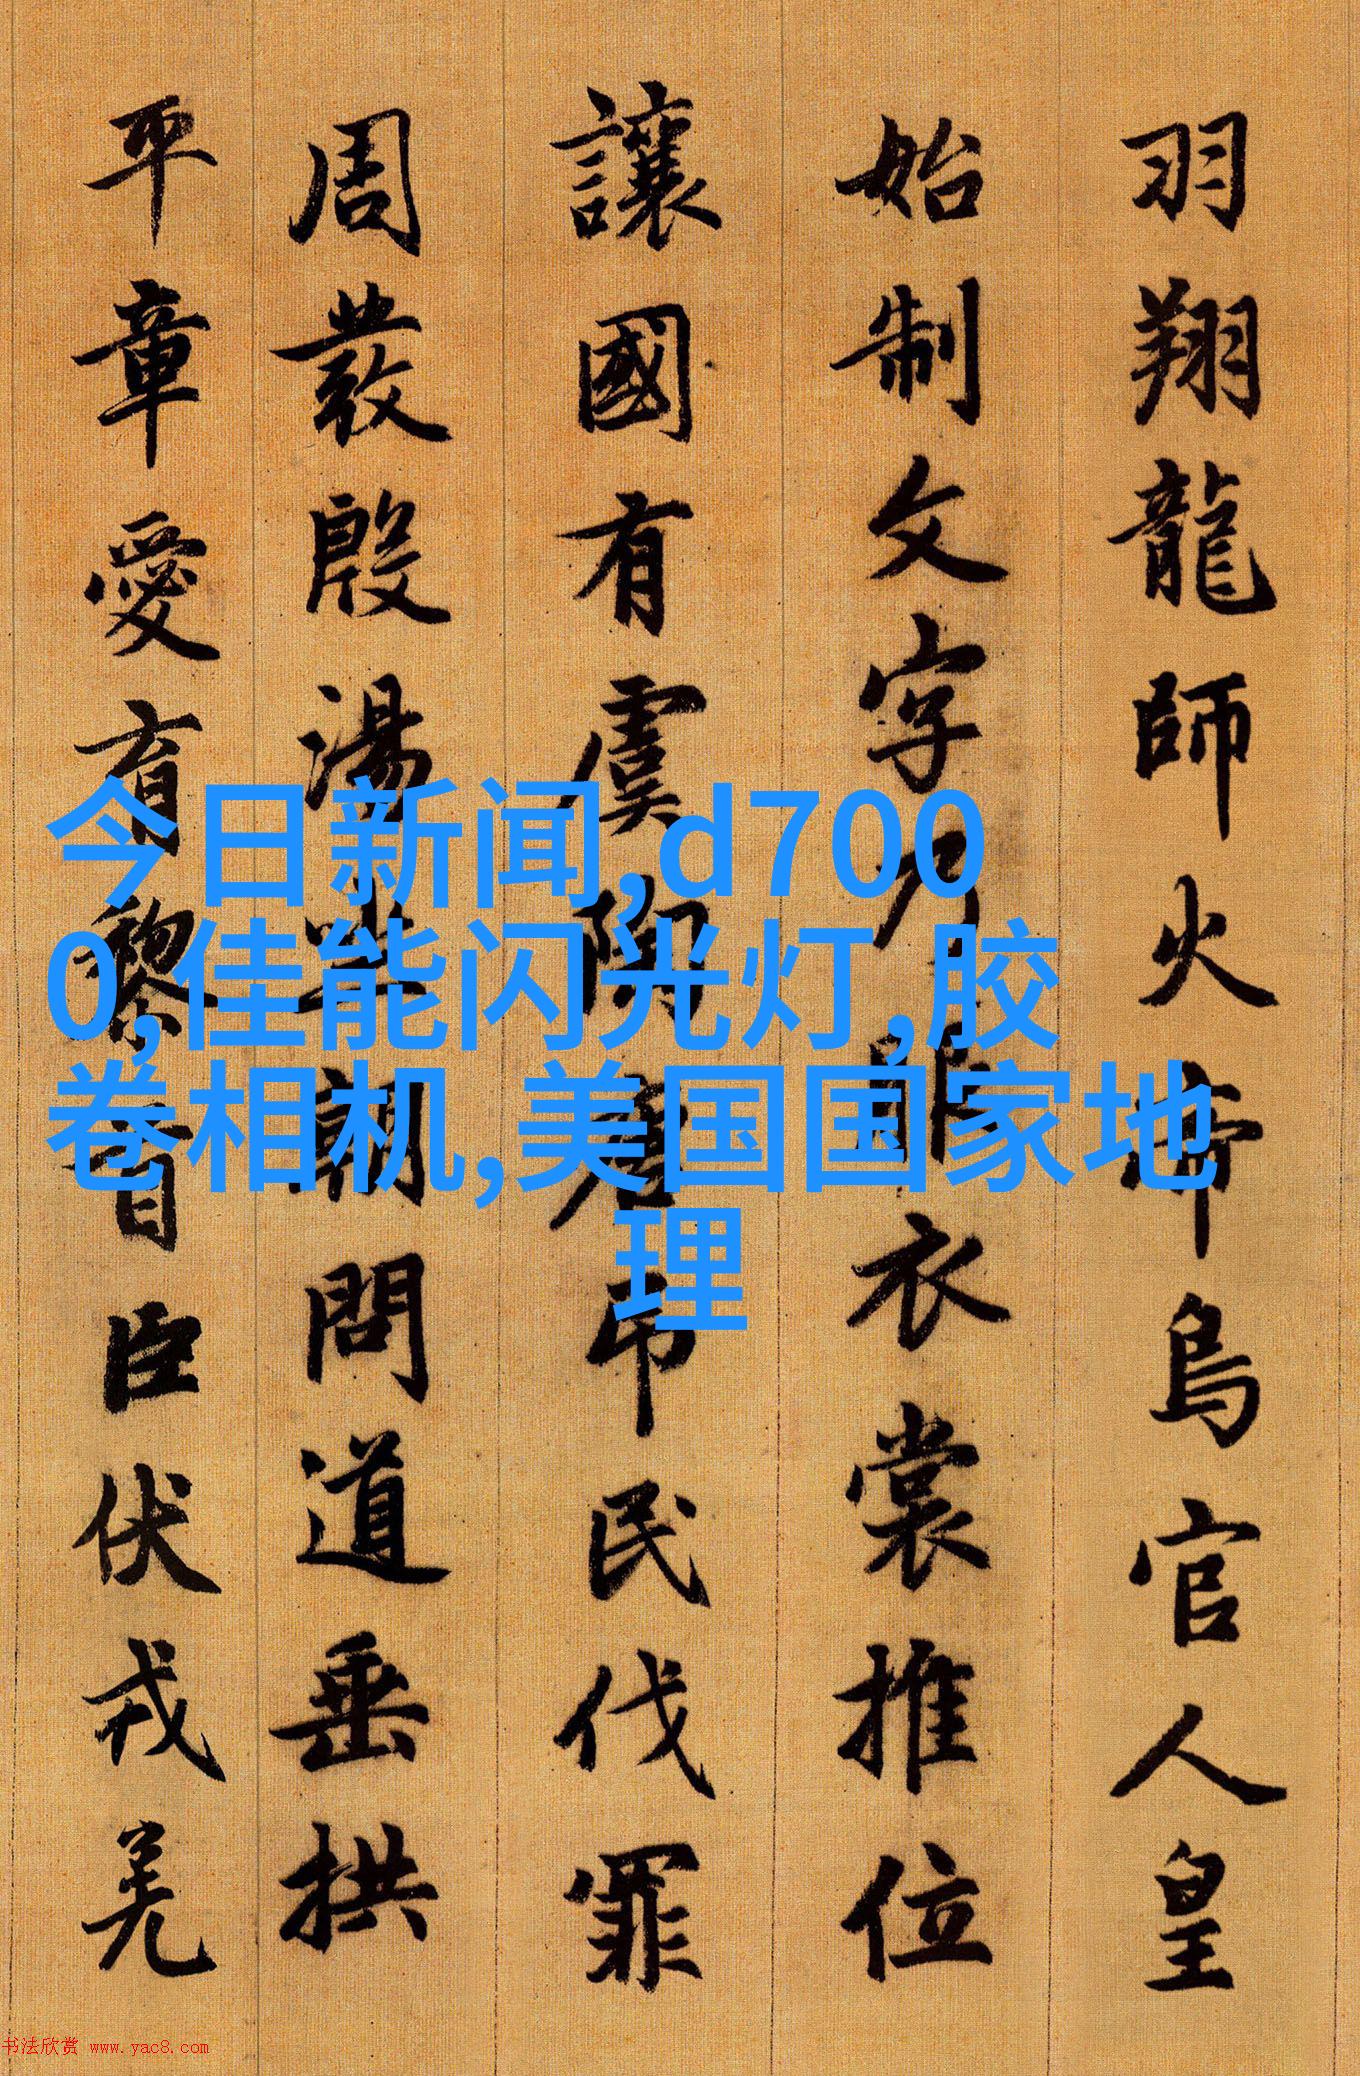 羽翔龍師火帝鳥官人皇
始制文字乃服衣裳推位
讓國有虞陶唐吊民伐罪
周發殷湯坐朝問道垂拱
平章愛育黎首臣伏戎羌
今日新闻,d700
0,佳能闪光灯,胶
卷相机,美国国家地
理
书法欣赏 www.yac8.com